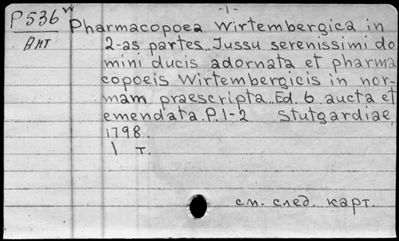 -1-
P536 w Pharmacopoea Wirtembergica in
Ант 2-as partes. Jussu serenissimi do
mini ducis adornata et pharma
copoeis Wirtembergicis in nor-
mam praescripta. Ed. 6 aucta et
emendata. P. 1-2 Stutgardiae,
1798.
1 т.
см. след. карт.